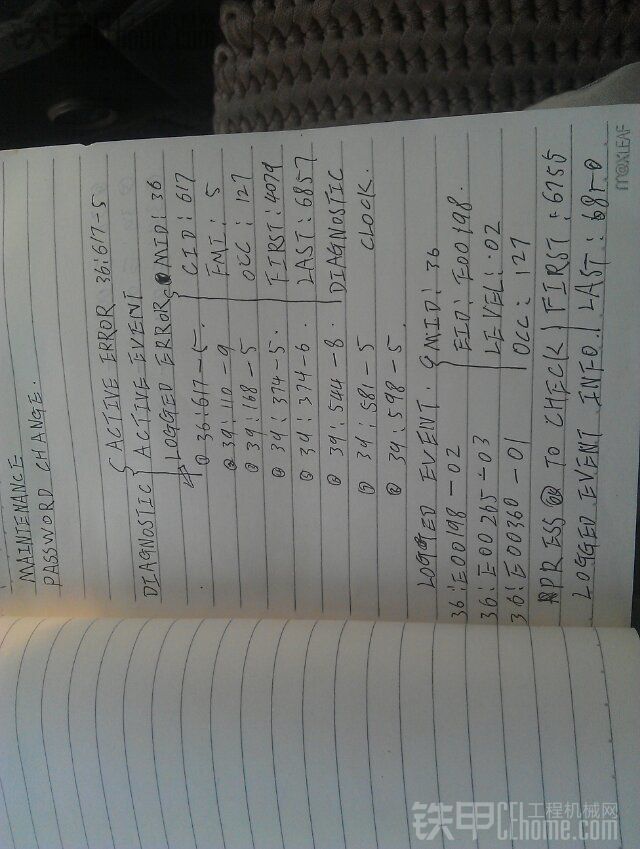 MAINTENANCE
PASSWORD CHANGE.
{ ACTIVE ERROR 36:617-5
DIAGNOSTIC { ACTIVE EVENT
LOGGED ERROR { MID: 36
① 36:617-5. CID: 617
② 39:110-9 FMI: 5
③ 39:168-5 OCC: 127
④ 39:374-5. FIRST: 4079
⑤ 39:374-6. LAST: 6857
⑥ 39:544-8. DIAGNOSTIC
⑦ 39:581-5 CLOCK.
⑧ 39:598-5.
LOGGED EVENT. { MID: 36
36:E00198-02 EID: E00198.
36:E00265-03 LEVEL: 02
36:E00360-01 OCC: 127
PRESS OK TO CHECK FIRST: 6755
LOGGED EVENT INFO. LAST: 6850
MAXLEAF
铁甲 CEhome.com
工程机械网